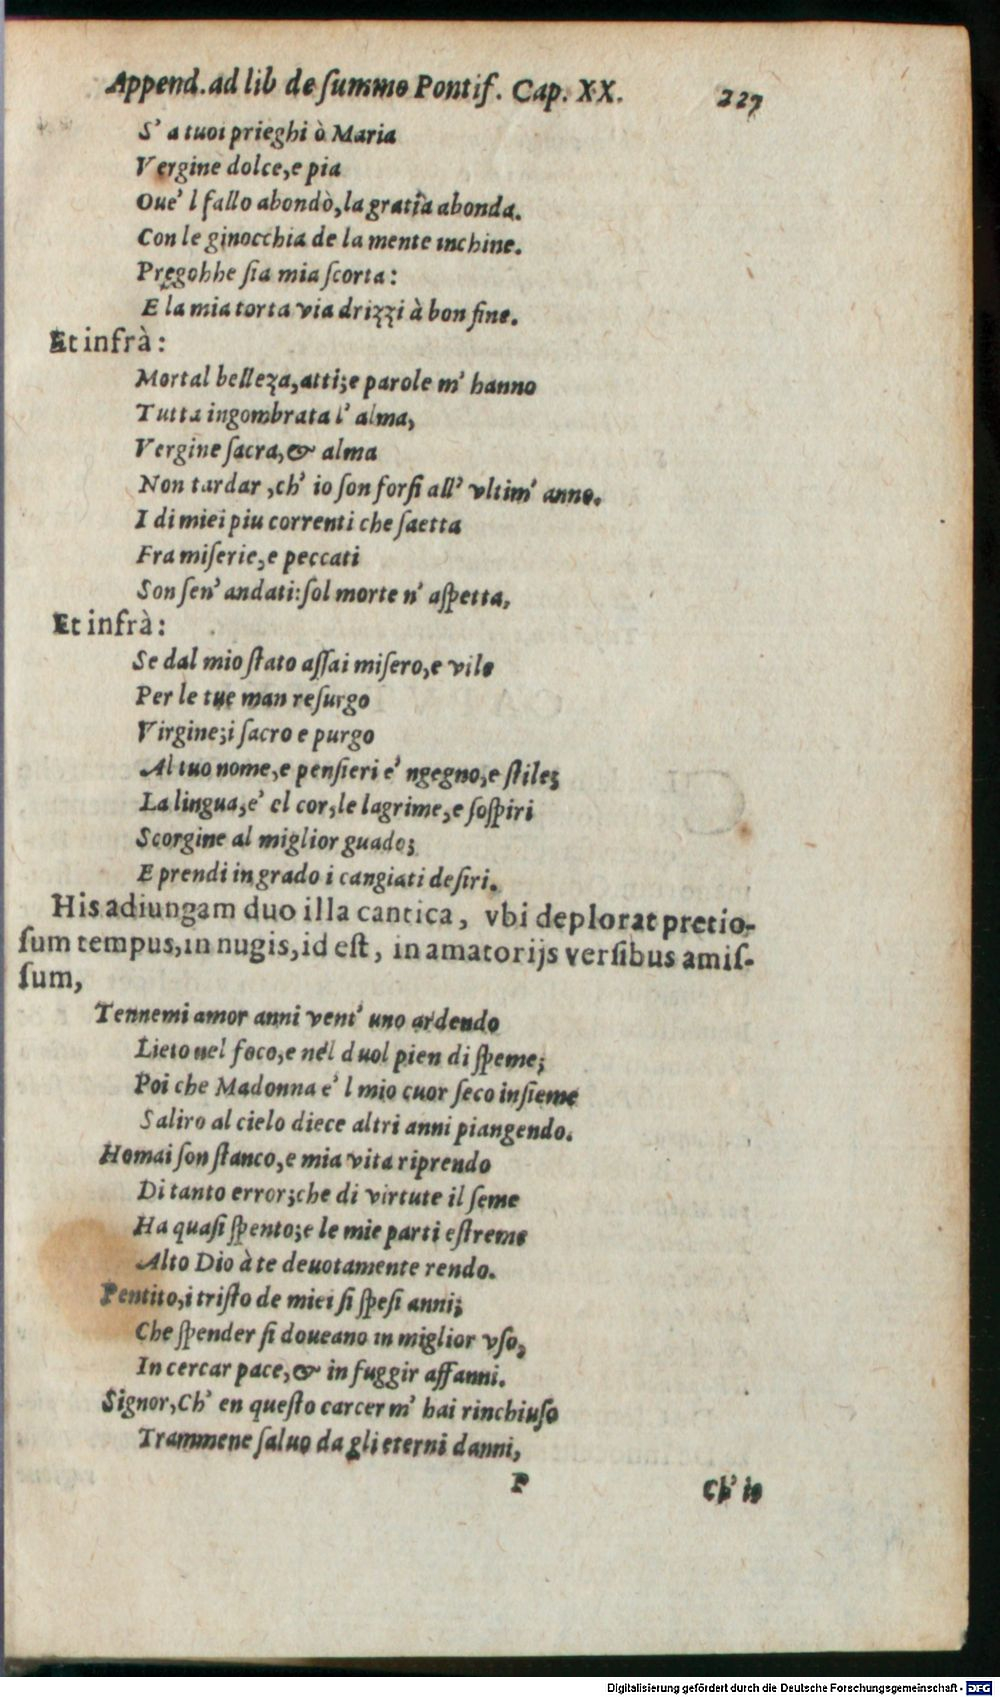 Append. ad lib de ſummo Pontif. Cap. XX. 227
S' a tuoi prieghi ò Maria
Vergine dolce, e pia
Oue' l fallo abondò, la gratia abonda.
Con le ginocchia de la mente inchine.
Pregohhe ſia mia ſcorta:
E la mia torta via drizzi à bon fine.
Et infrà:
Mortal belleza, atti; e parole m' hanno
Tutta ingombrata l' alma,
Vergine ſacra, & alma
Non tardar, ch' io ſon forſi all' vltim' anno.
I di miei piu correnti che ſaetta
Fra miſerie, e peccati
Son ſen' andati: ſol morte n' aſpetta,
Et infrà:
Se dal mio ſtato aſſai miſero, e vile
Per le tue man reſurgo
Virgine; i ſacro e purgo
Al tuo nome, e penſieri e' ngegno, e ſtile;
La lingua, e' el cor, le lagrime, e ſoſpiri
Scorgine al miglior guado;
E prendi in grado i cangiati deſiri.
His adiungam duo illa cantica, vbi deplorat pretio-
ſum tempus, in nugis, id eſt, in amatorijs verſibus amiſ-
ſum,
Tennemi amor anni vent' uno ardendo
Lieto nel foco, e nel duol pien di ſpeme;
Poi che Madonna e' l mio cuor ſeco inſieme
Saliro al cielo diece altri anni piangendo.
Homai ſon ſtanco, e mia vita riprendo
Di tanto error; che di virtute il ſeme
Ha quaſi ſpento; e le mie parti eſtreme
Alto Dio à te deuotamente rendo.
Pentito, i triſto de miei ſi ſpeſi anni;
Che ſpender ſi doueano in miglior vſo,
In cercar pace, & in fuggir affanni.
Signor, Ch' en queſto carcer m' hai rinchiuſo
Trammene ſaluo da gli eterni danni,
P Ch' io
Digitalisierung gefördert durch die Deutsche Forschungsgemeinschaft - DFG